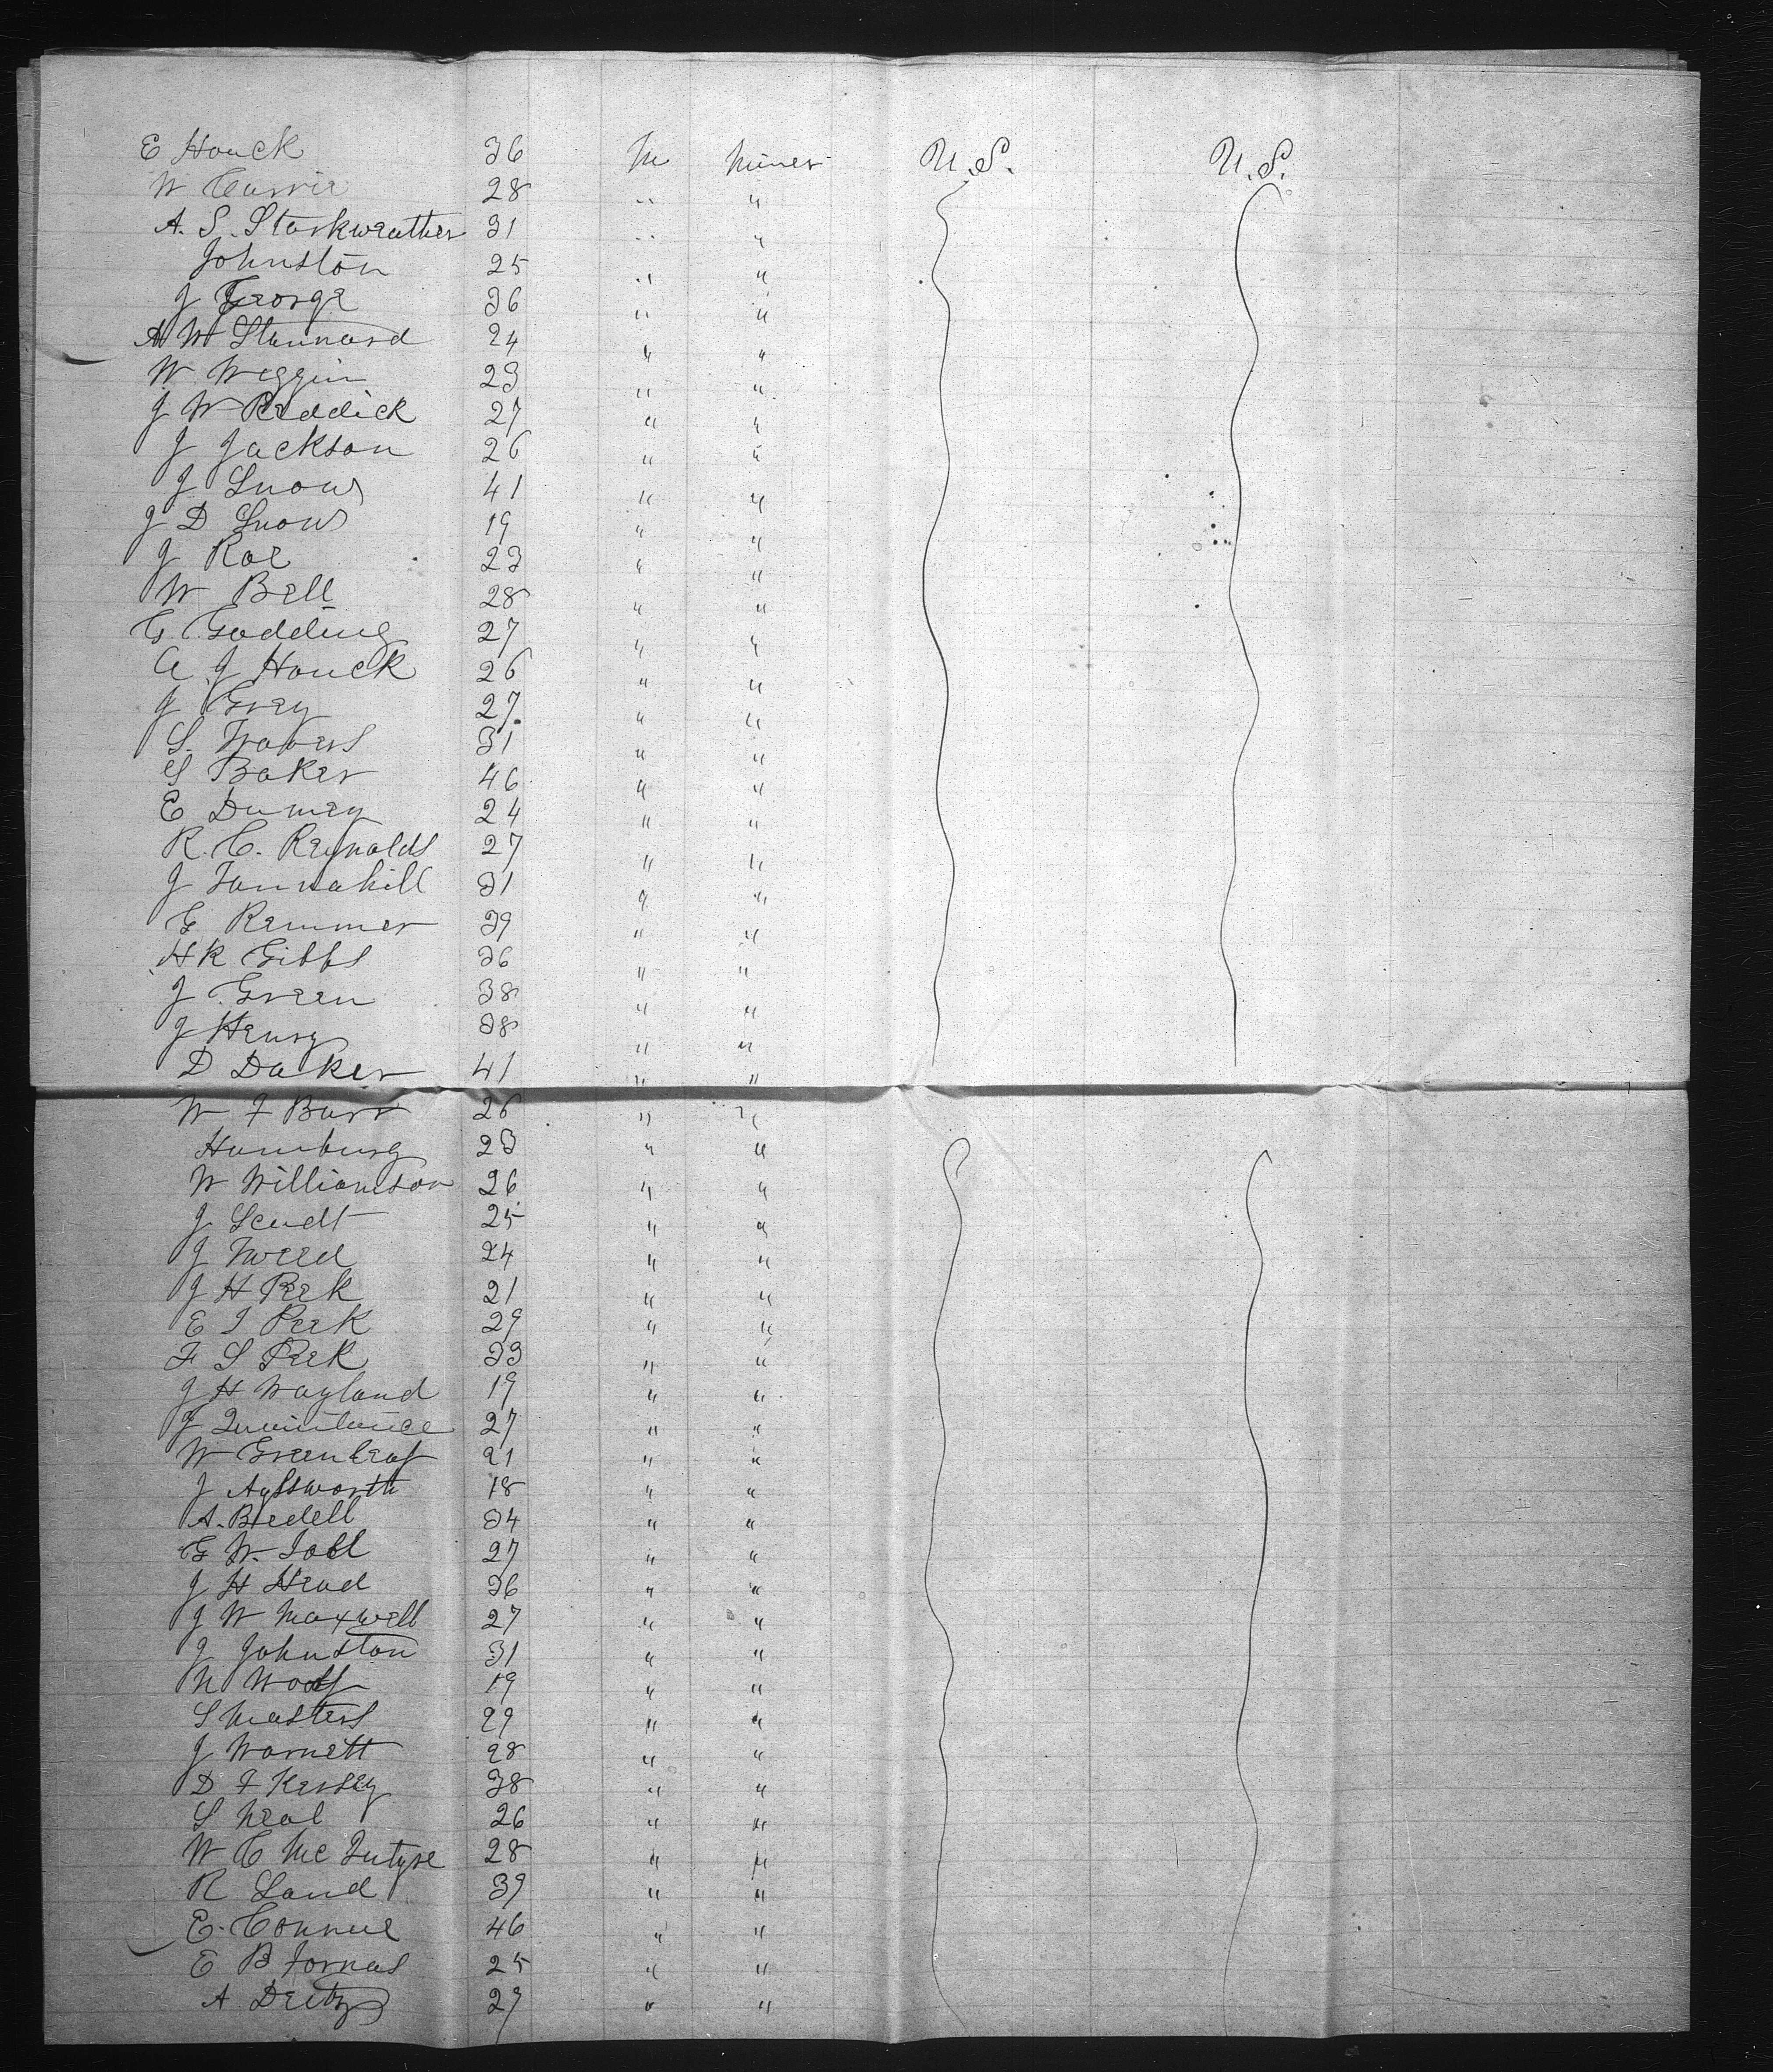 E Houck 36 M Miner U.S. U.S.
W Currie 28 " "
A. S. Starkweather 31 " "
Johnston 25 " "
J George 36 " "
A W Stannard 24 " "
W Weggin 23 " "
J W Reddick 27 " "
J Jackson 26 " "
J Snow 41 " "
J D Snow 19 " "
J Roe 23 " "
W Bell 28 " "
G. Godding 27 " "
A J Houck 26 " "
J Grey 27 " "
S. Wavers 31 " "
S Baker 46 " "
E Dumey 24 " "
R. C. Reynolds 27 " "
J Tannahill 31 " "
G Remmer 39 " "
H R Gibbs 36 " "
J Green 38 " "
J Henry 38 " "
D Daker 41 " "
W F Burr 26 " "
Hamburg 23 " "
W Williamson 26 " "
J 25 " "
J Tweed 24 " "
J H Peek 21 " "
E I Peek 29 " "
F S Peek 33 " "
J H Wayland 19 " "
J Quintance 27 " "
W Greenleaf 21 " "
J Aylsworth 18 " "
A. Bedell 34 " "
G W. 27 " "
J H Head 36 " "
J W Maxwell 27 " "
J Johnston 31 " "
N Woolf 19 " "
S Masters 29 " "
J Warnett 28 " "
D F Kersey 38 " "
S Neal 26 " "
W C McIntyre 28 " "
R Land 39 " "
E. 46 " "
E B Fornas 25 " "
A Deitz 27 " "